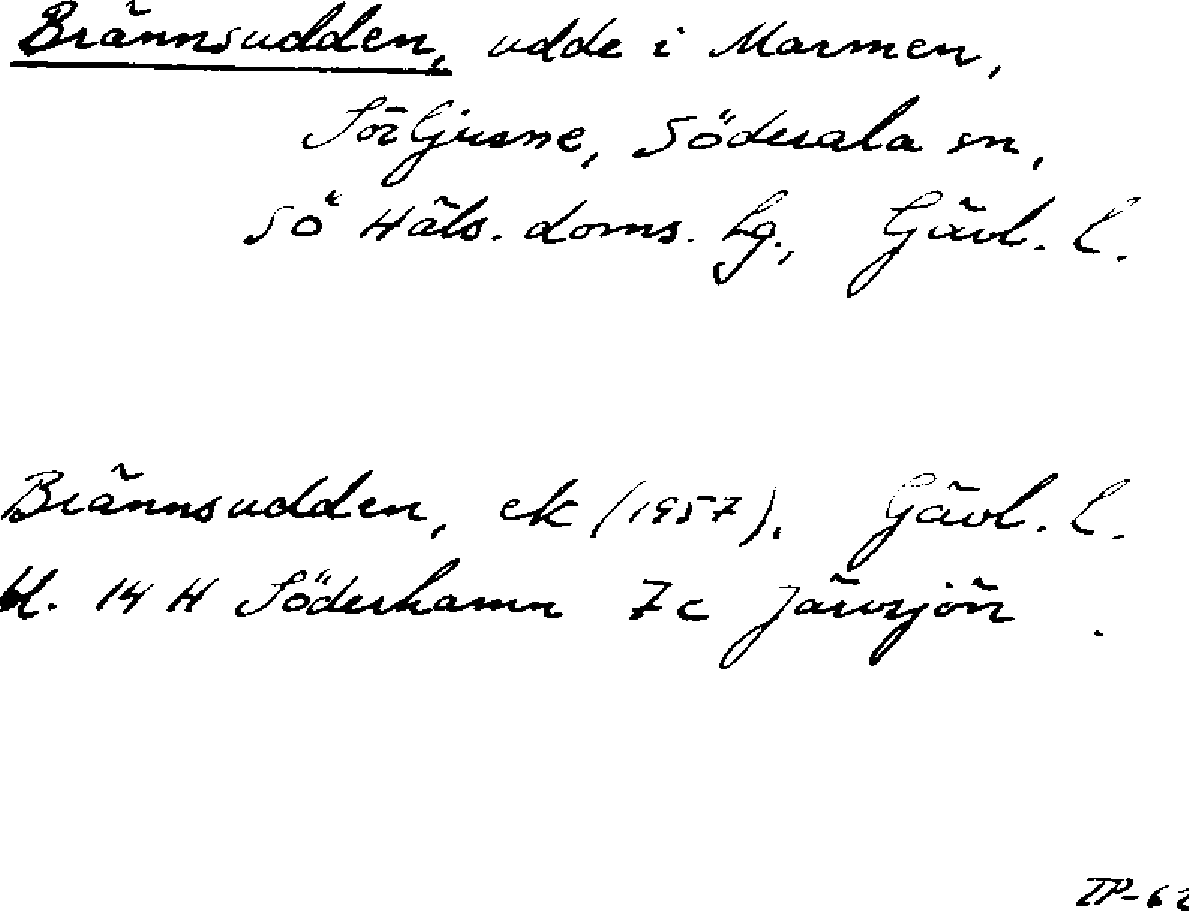 Brännsudden, udde i Marmen,
Sörljusne, Söderala sn,
SÖ Häls. doms. hg., Gävl. l.
Brännsudden, ek (1957). Gävl. l.
bl. 14 H Söderhamn 7c Järvsjön.